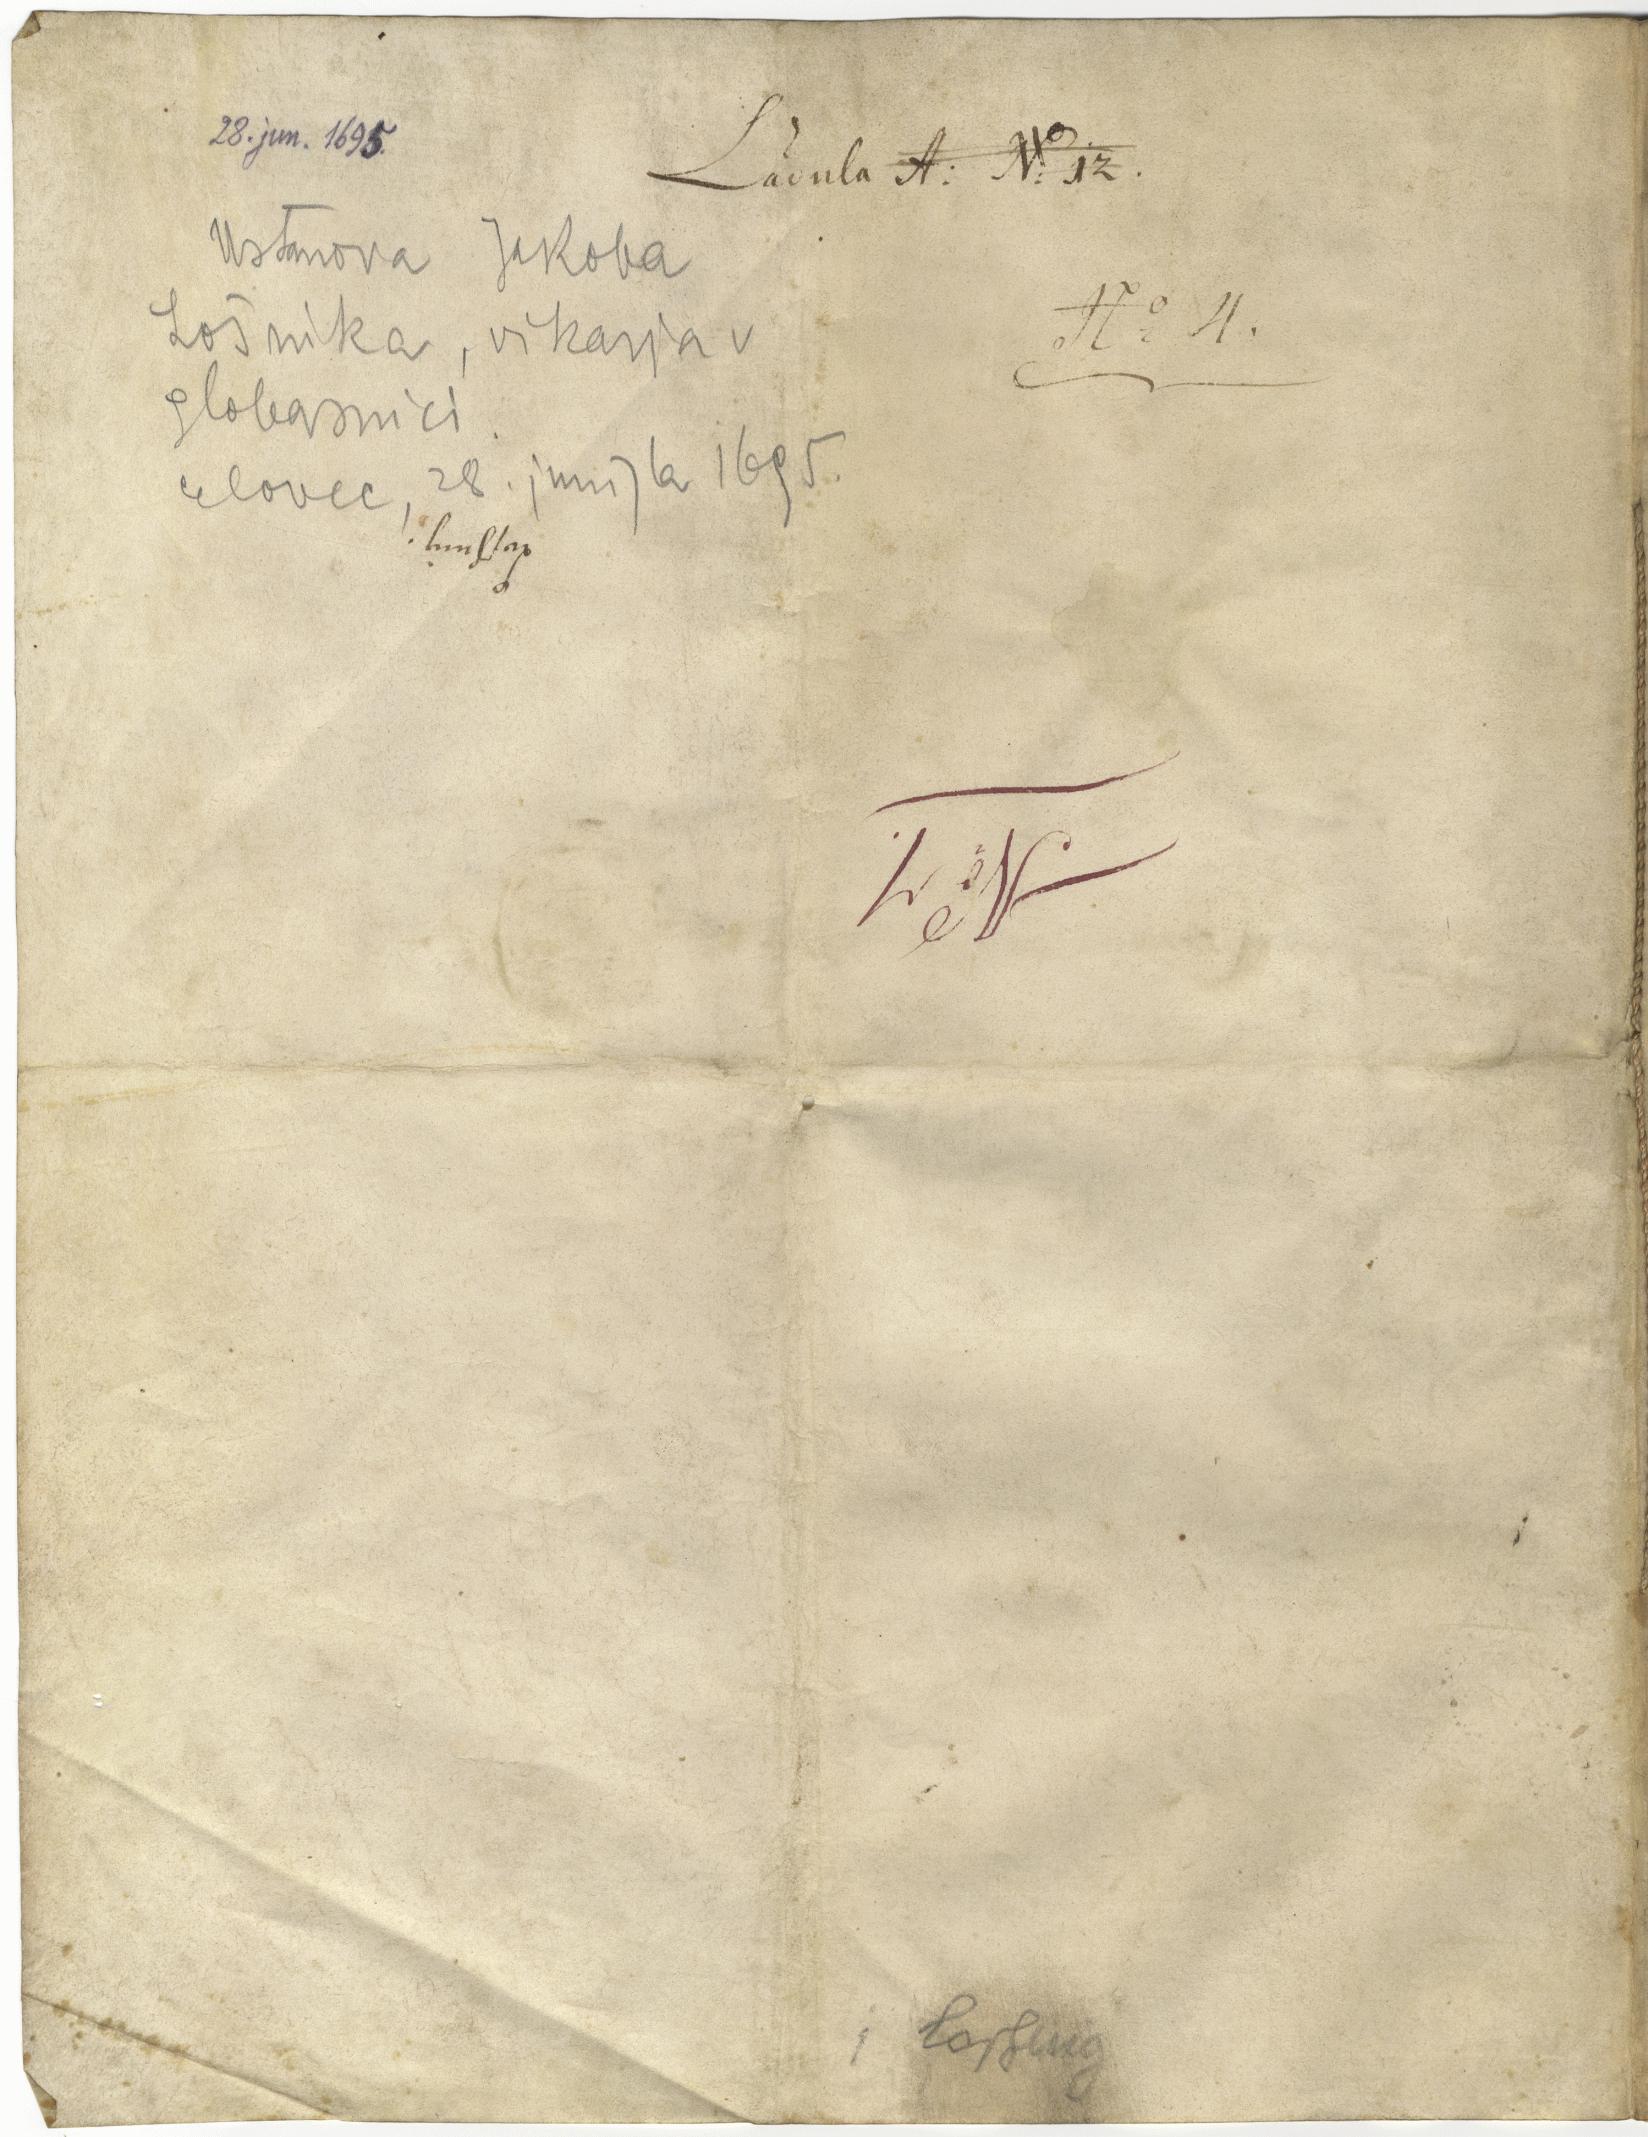 28. jun. 1695.
Ladula A: No: 12.
Ustanova Jakoba
Lošnika, vikarja v
globasnici.
celovec, 28. junija 1695.
No 4.